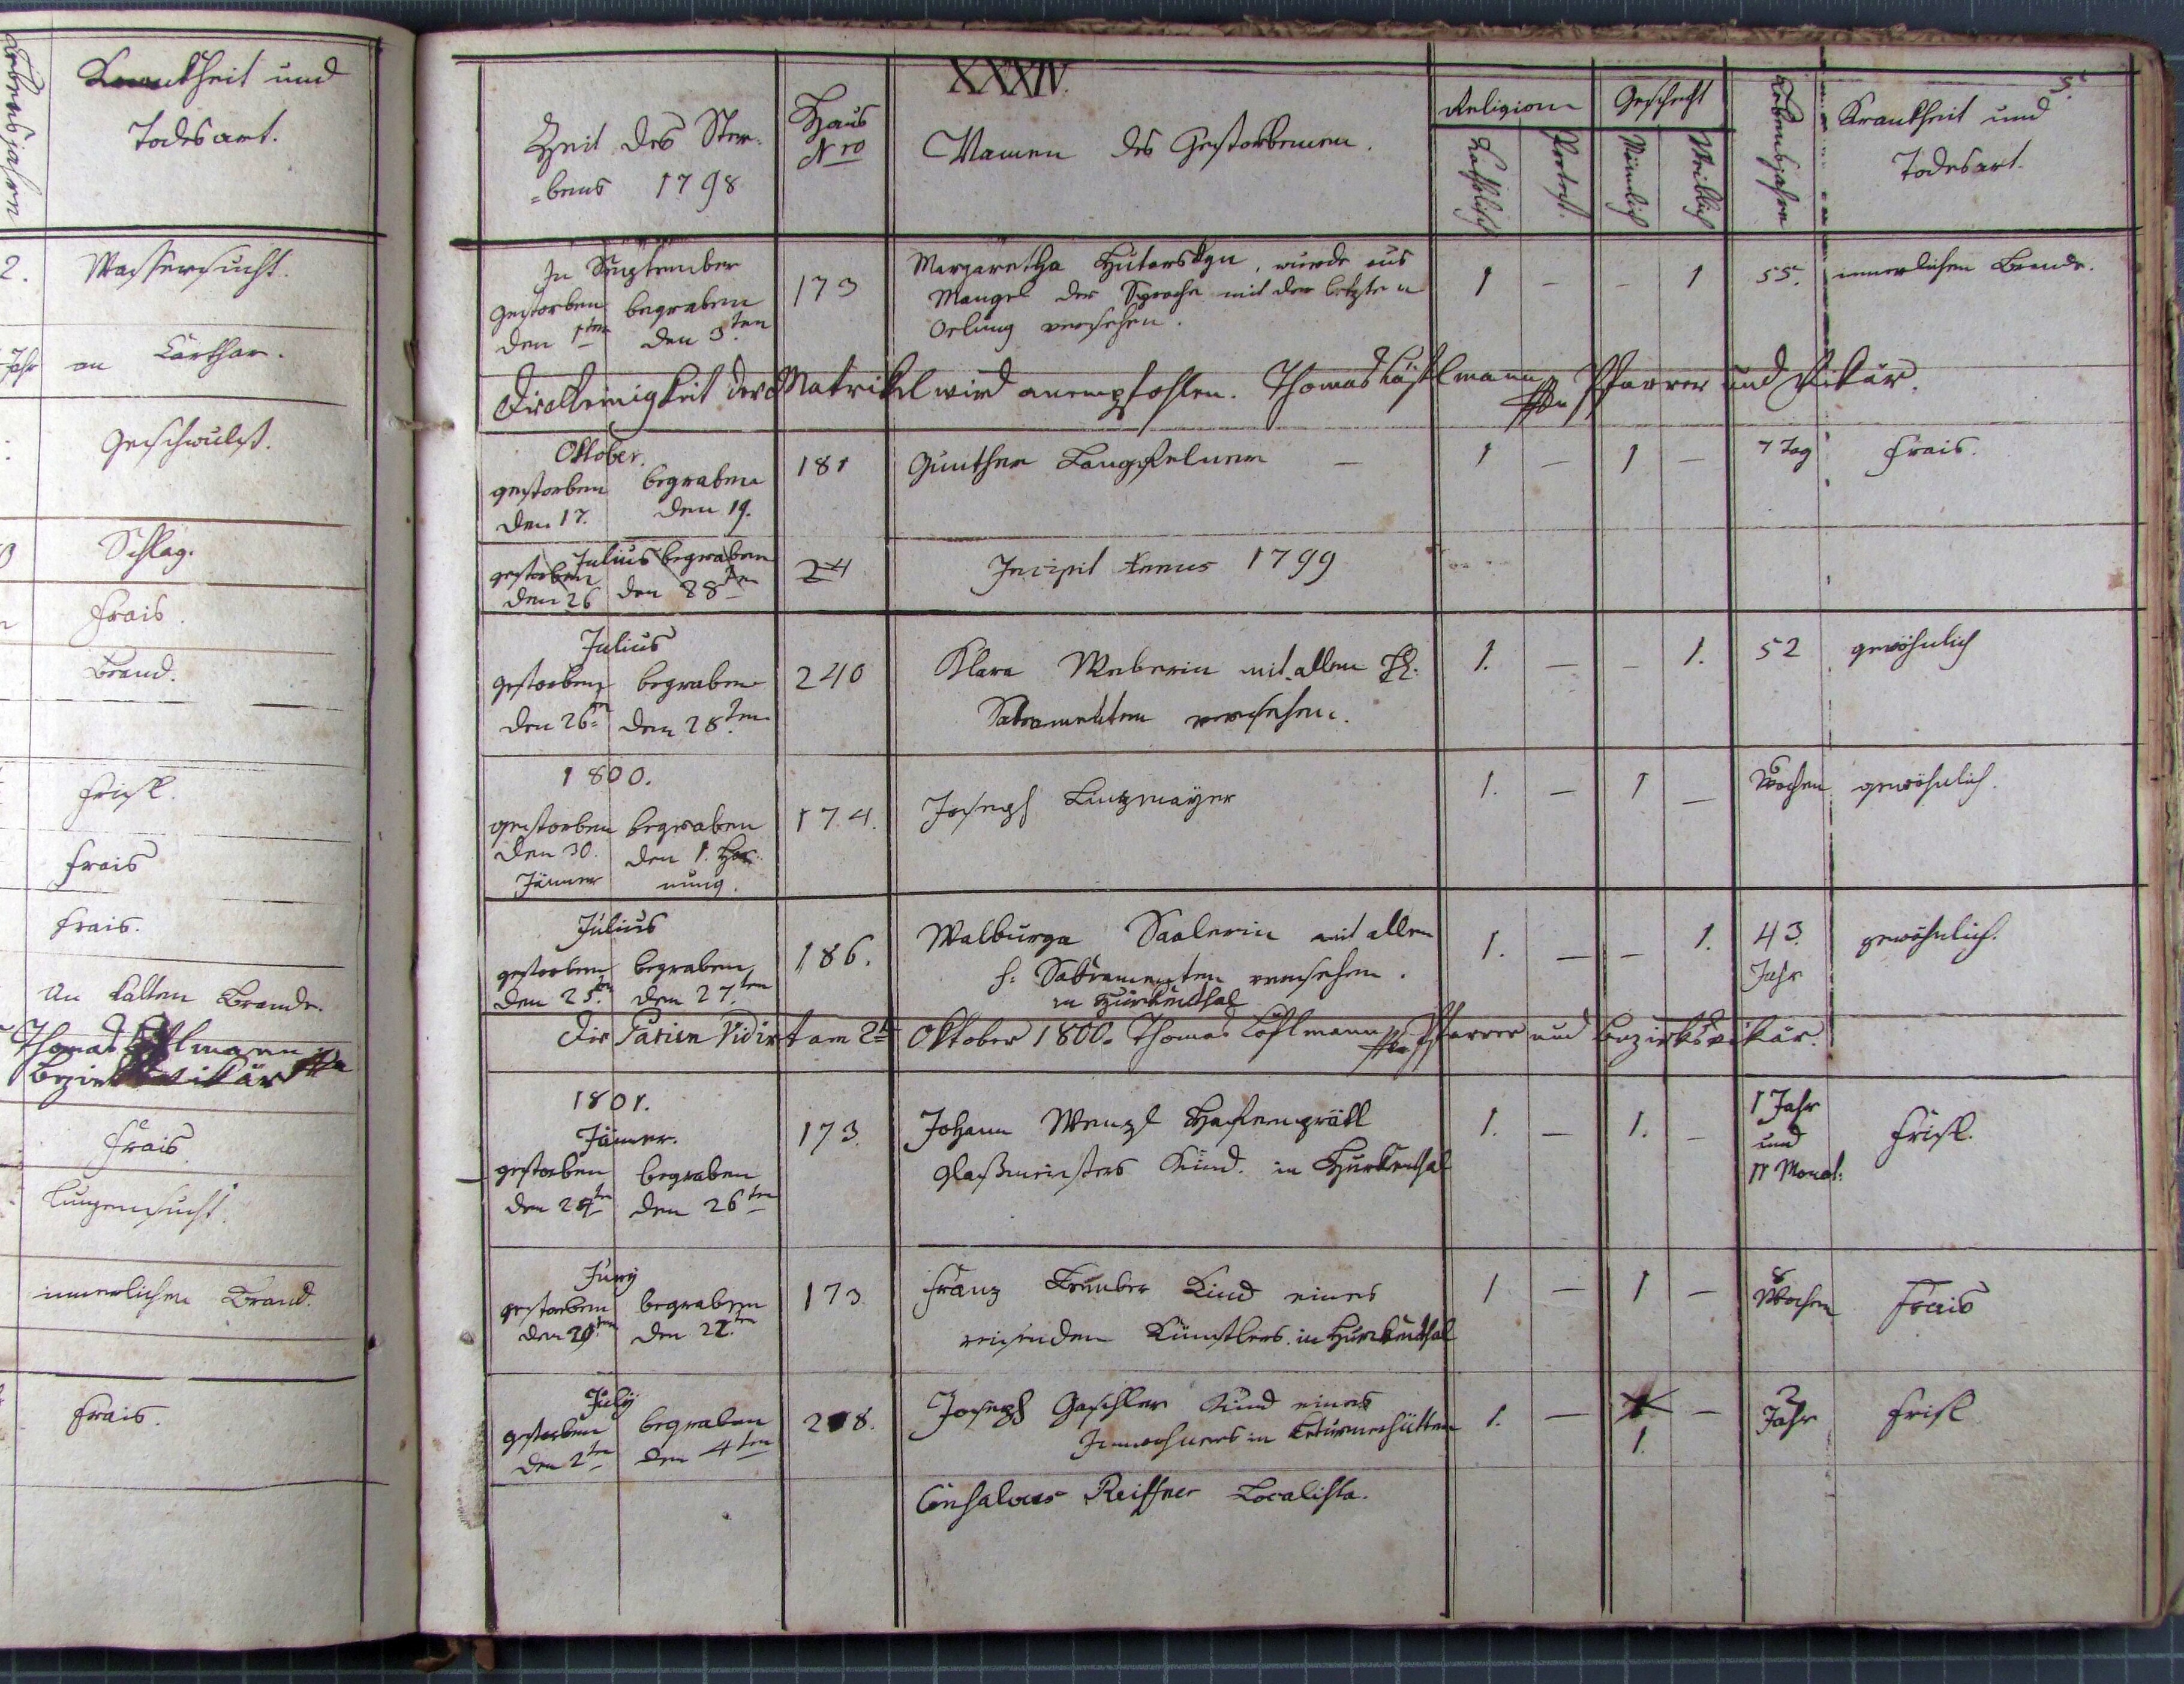 Lebensjahre
Krankheit und
Todesart.
2. Wassersucht.
Jahr an Carthar.
Geschwulst.
Schlag.
Frais.
Brand.
Frisl.
Frais
Frais.
An kalten Brande.
Thomas
Bezirksvikär
Frais
Lungensucht.
innerlichen Brand.
Frais.
XXXIV.
5.
Zeit des Ster-
=bens 1798
Haus
Nro
Namen des Gestorbenen.
Religion
Katholisch
Protest.
Geschecht
Mänlich
Weiblich
Lebensjahre
Krankheit und
Todesart.
In September
gestorben begraben
den 1ten den 3.ten
173
Margaretha, wurde aus
Mangel der Sprache mit der letzten
Oelung versehen.
1 - - 1 55. innerlichen Brande.
Die Reinigkeit der Matrikel wird anempfohlen. Thomas Pfarrer und Vikär.
Oktober.
gestorben begraben
den 17. den 19.
181 Gunther Langfelner — 1 — 1 — 7 Tag Frais.
Julius begraben
gestorben
den 26 den 28ten
24 Incipit Annus 1799
Julius
gestorben begraben
den 26ten den 28.ten
240 Klara Weberin mit allen
Sakramenten versehen.
1. — - 1. 52 gewöhnlich
1800.
gestorben begraben
den 30. den 1. Hor-
Jänner nung.
174. Joseph Linzmayer 1. — 1 — 6 Wochen gewöhnlich.
Julius
gestorben begraben
den 25.ten den 27.ten
186. Walburga Saalerin mit allen
h: Sakramenten versehen.
in Hurkenthal
1. — - 1. 43. Jahr gewöhnlich.
Die Parien Vidirt am 2t Oktober 1800. Thomas Pfarrer und Bezirksvikär.
1801.
Jäner.
gestorben begraben
den 24ten den 26ten
173. Johann Wenzl Hafenbrädl
Glaßmeisters Kind. in Hurkenthal
1. — 1. - 1 Jahr
und
11 Monat: Frisl.
Juny
gestorben begraben
den 20ten den 22.ten
173 Franz Kind eines
reisenden Künstlers. in Hurkenthal
1 — 1 — 8
Wochen Frais
July
gestorben begraben
den 2ten den 4ten
218. Joseph Gaschler Kind eines
Inwohners in Stürmerhütten
1. — 1 —
1.
2
Jahr Frisl
Consalvus Reiffner Localista.